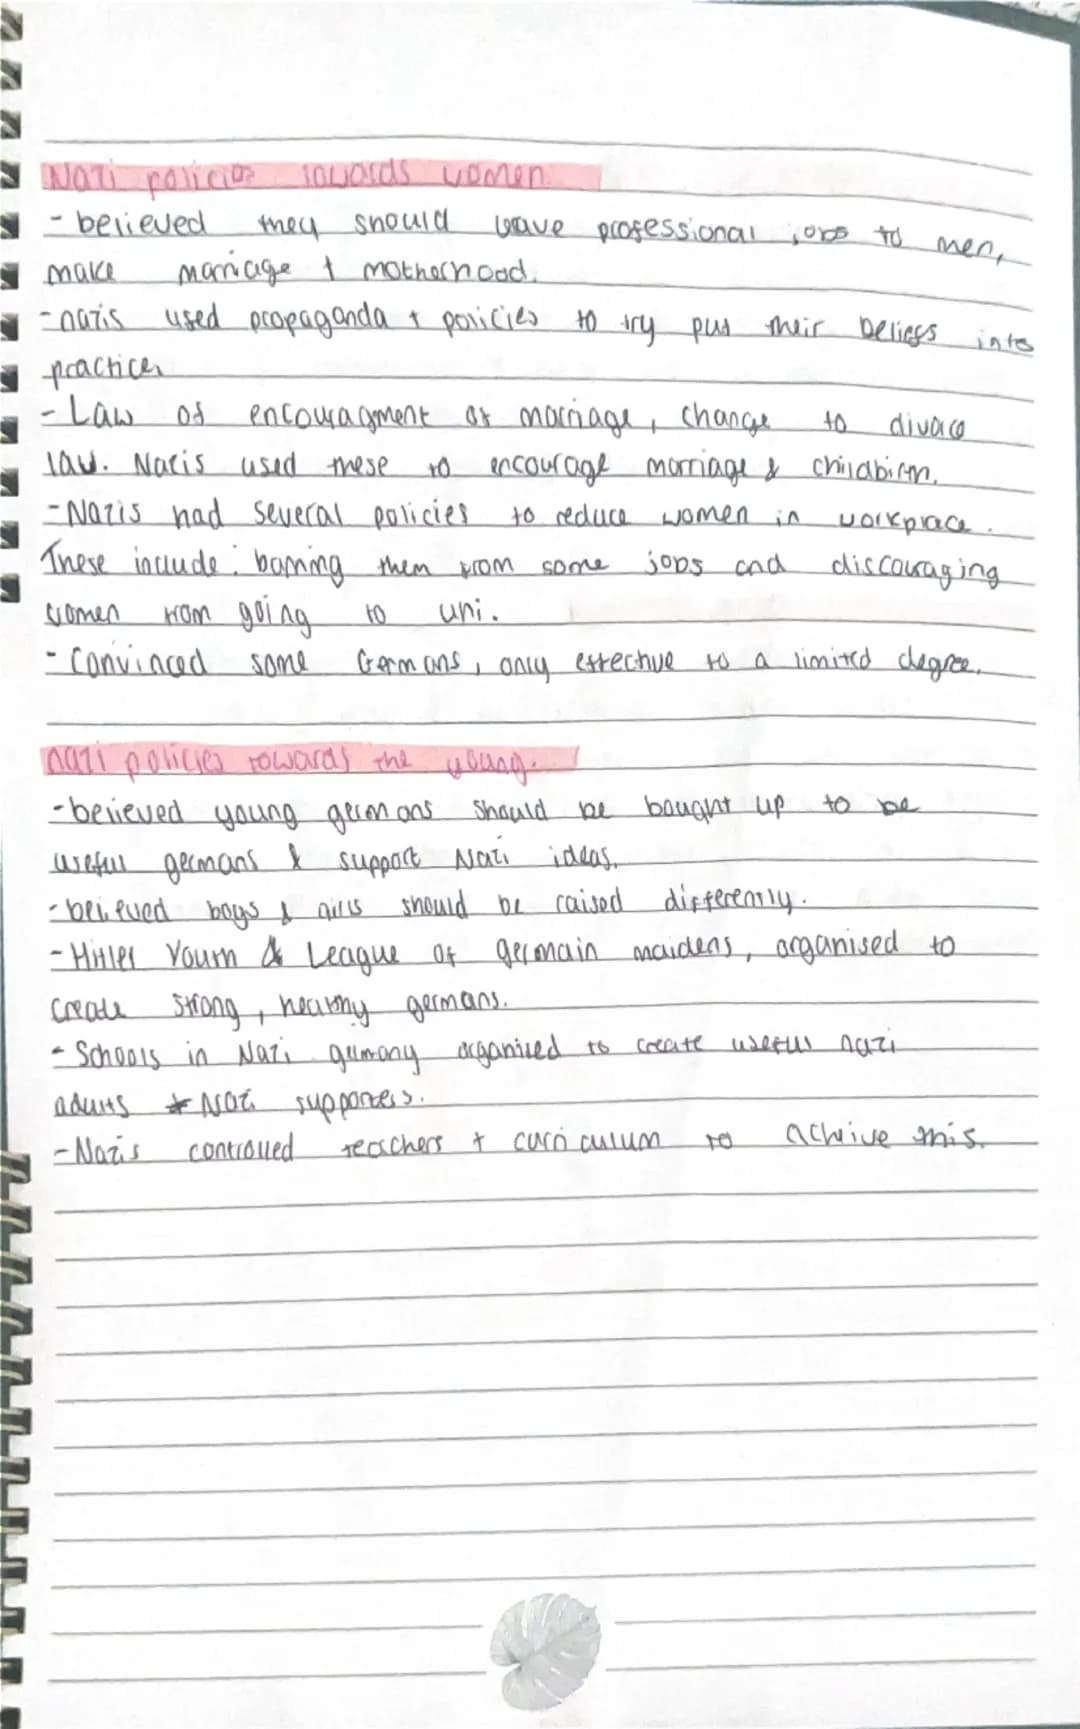 Nazi policies towards women.
- believed they should leave professional jobs to men,
make marriage + motherhood.
- nazis used propaganda + policies to try put their beliefs into
practice.
- Law of encouragment of marriage, change to divorce
law. Nazis used these to encourage marriage & childbirth.
- Nazis had several policies to reduce women in workplace.
These include: banning them from some jobs and discouraging
women from going to uni.
- Convinced some Germans, only effective to a limited degree.
nazi policies towards the young.
- believed young germans should be bought up to be
useful germans & support Nazi ideas.
- believed boys & girls should be raised differently.
- Hitler Youth & League of germain maidens, organised to
create strong, healthy germans.
- Schools in Nazi germany organised to create useful nazi
adults + Nazi supporters.
- Nazis controlled teachers + curriculum to acheive this.